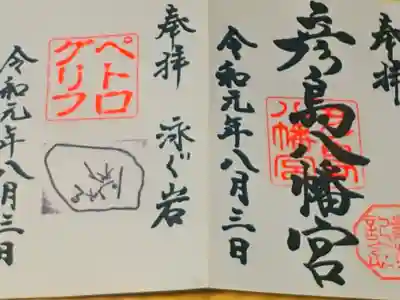 奉拝
彦島八幡宮
令和元年八月三日
奉拝
泳ぐ岩
ペトログリフ
令和元年八月三日